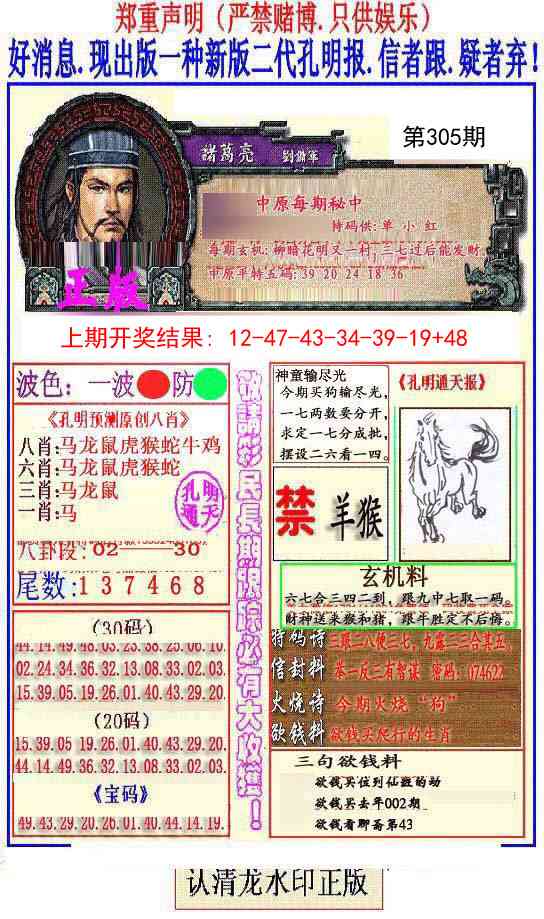 郑重声明（严禁赌博.只供娱乐）
好消息.现出版一种新版二代孔明报.信者跟.疑者弃!
第305期
諸葛亮 劉備軍
中原每期秘中
特码供:单 小 红
每期玄机:柳暗花明又一料 三七过后能发财
中原平特五码:39 20 24 18 36
正版
上期开奖结果: 12-47-43-34-39-19+48
波色: 一波 防
《孔明预测原创八肖》
八肖:马龙鼠虎猴蛇牛鸡
六肖:马龙鼠虎猴蛇
三肖:马龙鼠
一肖:马
孔明
通天
八卦段:02——30
尾数:137468
(30码)
44.14.49.48.03.23.38.25.06.10.
02.24.34.36.32.13.08.33.02.03.
15.39.05.19.26.01.40.43.29.20.
(20码)
15.39.05.19.26.01.40.43.29.20.
44.14.49.36.32.13.08.33.02.03.
《宝码》
49.43.29.20.26.01.40.44.14.19.
敬請彩民長期跟踪必有大收獲！
神童输尽光
今期买狗输尽光,
一七两数要分开,
求定一七分成批,
摆设二六看一四。
《孔明通天报》
禁 羊猴
玄机料
六七合三四二到, 跟九中七取一码。
财神送来猴和猪, 跟牛胜定不后悔。
特码诗 三跟二八便三七, 九露三三合其五。
信封料 举一反三有智谋 密码: 074622
火烧诗 今期火烧“狗”
欲钱料 欲钱买爬行的生肖
三句欲钱料
欲钱买位到仙数的动
欲钱买去年002期
欲钱看聊斋第43
认清龙水印正版